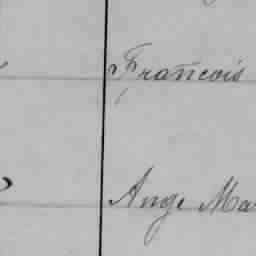 François
Ange Ma